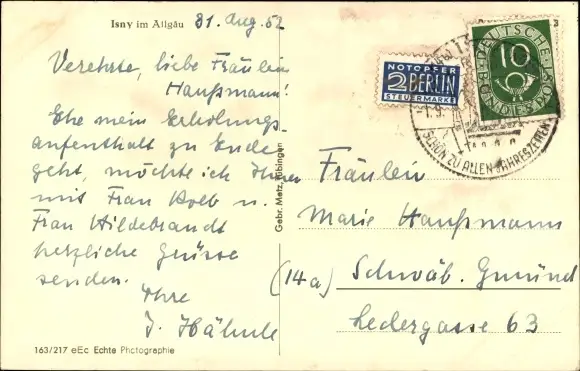 Isny im Allgäu
31. Aug. 52
Verehrte, liebe Fräulein
Haußmann!
Ehe mein Erholungs-
aufenthalt zu Ende
geht, möchte ich Ihnen
mit Frau Kolb u.
Frau Hildebrandt
herzliche Grüsse
senden.
Ihre
J. Hähnle
163/217 eEc Echte Photographie
Gebr. Metz, Tübingen
NOTOPFER
2 BERLIN
STEUERMARKE
DEUTSCHE
10
BUNDESPOST
SCHÖN ZU ALLEN JAHRESZEITEN
Fräulein
Marie Haußmann
(14a) Schwäb. Gmünd
Ledergasse 63